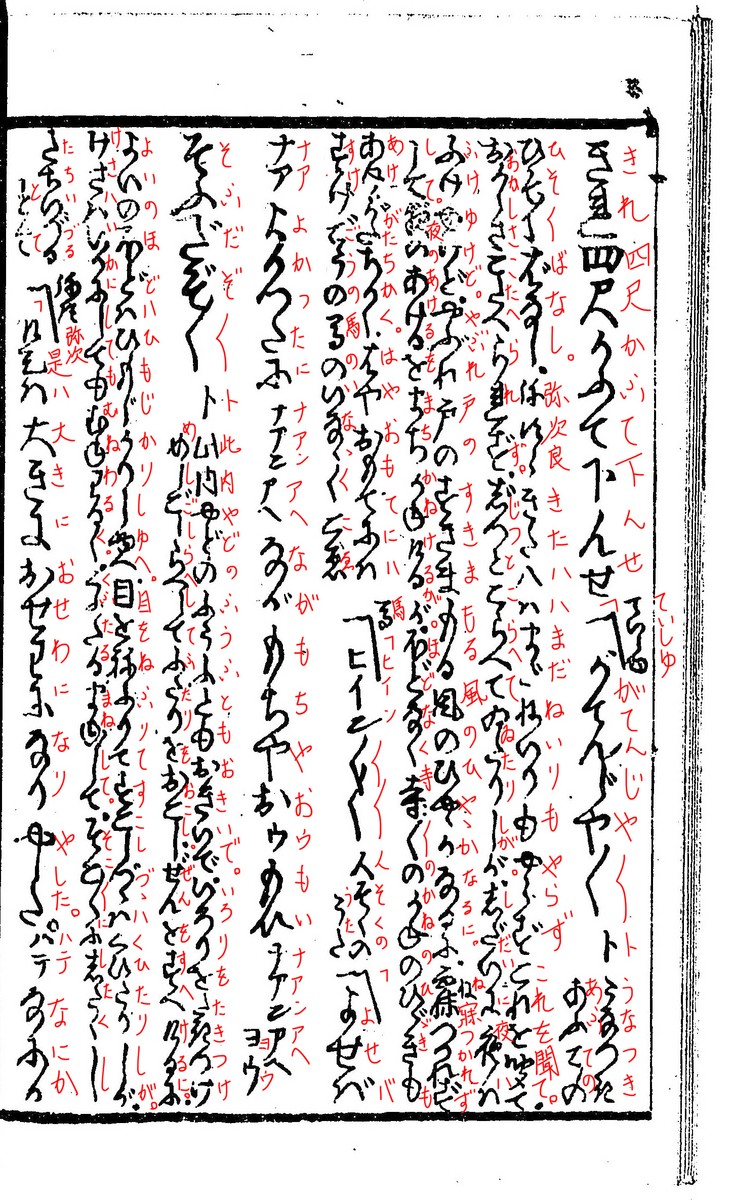 きれ四尺かふて下んせ ていしゆ「がてんじや〱ト うなつきあふての
ひそくばなし。弥次良きた八ハまだねいりもやらず これを聞て。
おかしさこたへられず。じつとこらへてゐたりしが。しだいに夜ハ
ふけゆけど。やぶれ戸のすきまもる風のひやゝかなるに。ね寐つかれず
して。夜のあけるをまちかねけるが。ほどなく寺〱のかねのひゞきも
あけがたちかく。はやおもてにハ
すけごうの馬のいなゝくこゑ 馬「ヒイン〱〱 人そくのうた「よせバ
ナアよかつたにナアンアヘながもちやおウもいナアンアヘヨウ
そふだぞ〱 ト此内やどのふうふともおきいで。いろりをたきつけ
めしごしらへしてふたりをおこし。ぜんをすへけるに。
よいのほどハひもじかりしゆへ。目をねぶりてすこしづゝハくひたりしが。
けさハいかにしてもむねわるく。くふたるまねして。そこ〱にしたくし
たちいづるとて 弥次「是ハ大きにおせわになりやした。ハテなにか